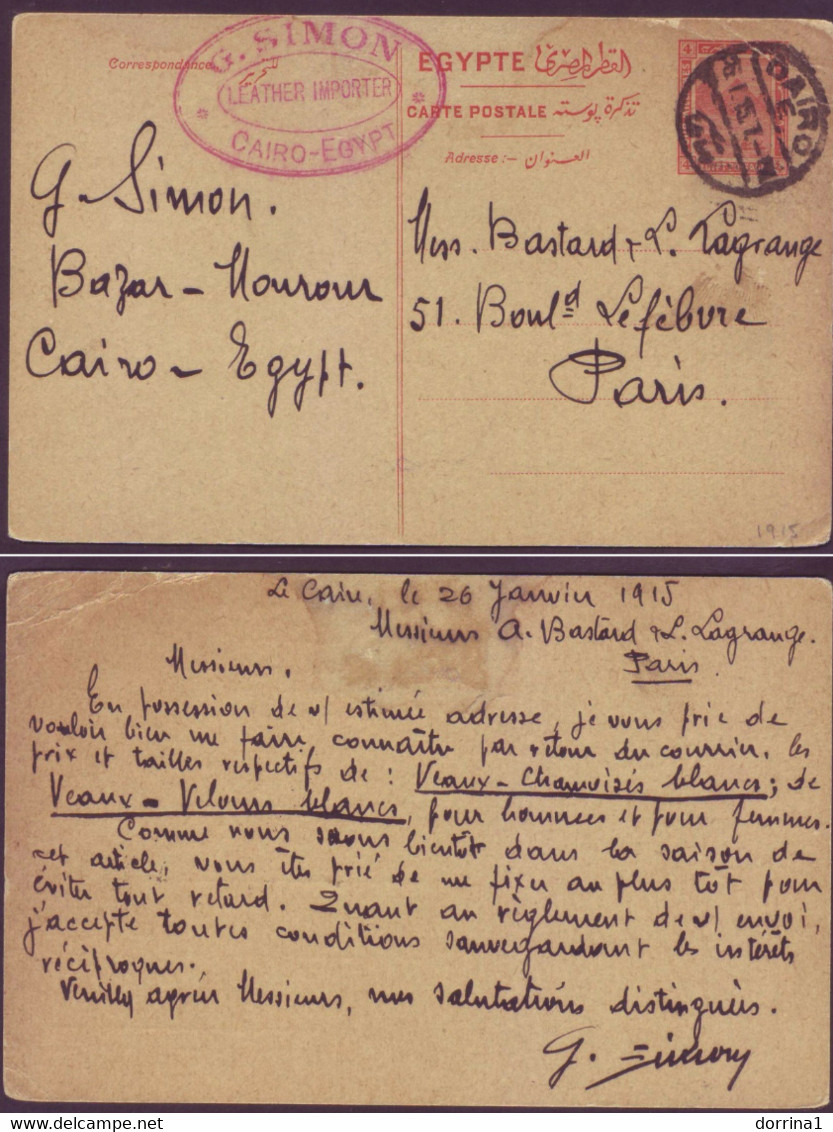 Correspondance
G. SIMON
LEATHER IMPORTER
CAIRO-EGYPT
EGYPTE القطر المصرى
CARTE POSTALE تذكرة بوستة
Adresse :- العنوان
4
CAIRO
G. Simon.
Bazar - Mourour
Cairo - Egypt.
Mess. Bastard & L. Lagrange
51. Boul<sup>d</sup> Lefèbvre
Paris.
1915
Le Caire, le 26 Janvier 1915
Messieurs A. Bastard & L. Lagrange.
Paris
Messieurs.
En possession de v/ estimée adresse, je vous prie de
vouloir bien me faire connaître par retour du courrier, les
prix et tailles respectifs de : Veaux - Chamoisés blancs; de
Veaux - Velours blancs, pour hommes et pour femmes.
Comme nous serons bientôt dans la saison de
cet article, vous êtes prié de me fixer au plus tôt pour
éviter tout retard. Quant au règlement de v/ envoi,
j'accepte toutes conditions sauvegardant les intérêts
réciproques.
Veuillez agréer Messieurs, mes salutations distinguées.
G. Simon
dorrina1